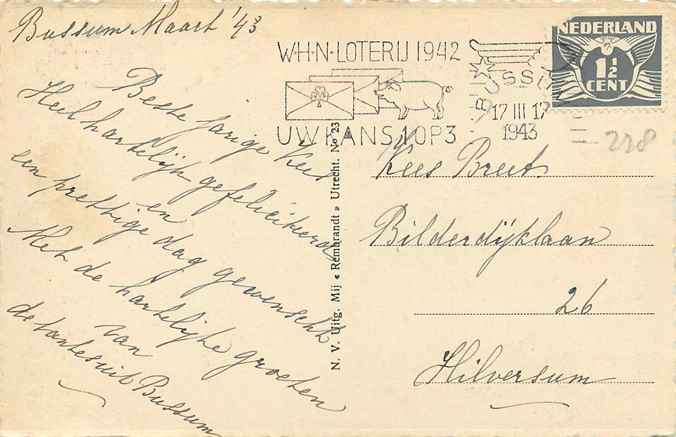 Bussum Maart '43
Beste jarige Kees
Heel hartelijk gefeliciteerd
en
een prettige dag gewenscht
Met de hartelijke groeten
van
de tantes uit Bussum
N. V. Uitg. Mij « Rembrandt » Utrecht. No 23
W·H·N·LOTERIJ 1942
UW KANS 1 OP 3
BUSSUM
17 III 17
1943
NEDERLAND
1½
CENT
228
Kees Breet.
Bilderdijklaan
26
Hilversum